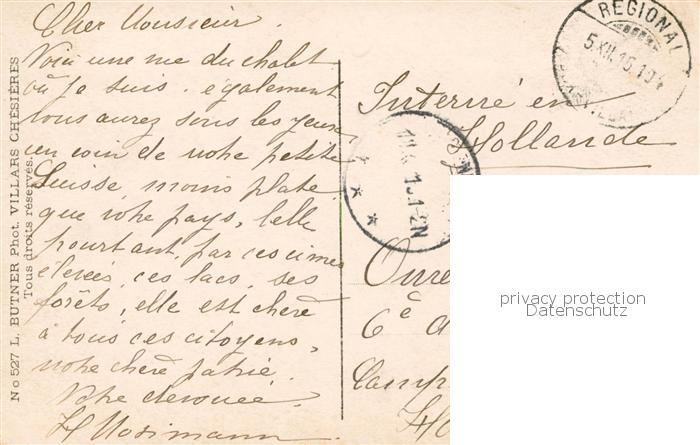 Cher Monsieur.
Voici une vue du chalet
où je suis. également
vous aurez sous les yeux
un coin de notre petite
Suisse moins plate
que votre pays, belle
pourtant, par ces cimes
élevées, ces lacs, ses
forêts, elle est chère
à tous ces citoyens,
notre chère patrie.
Votre dévouée.
H Mosimann.
No 527 L. BUTNER Phot. VILLARS CHESIÈRES
Tous droits réservés.
REGIONAL
5.XII.15.10
Interné en
Hollande
1-2N
Ouvre
6è
Camp
privacy protection
Datenschutz